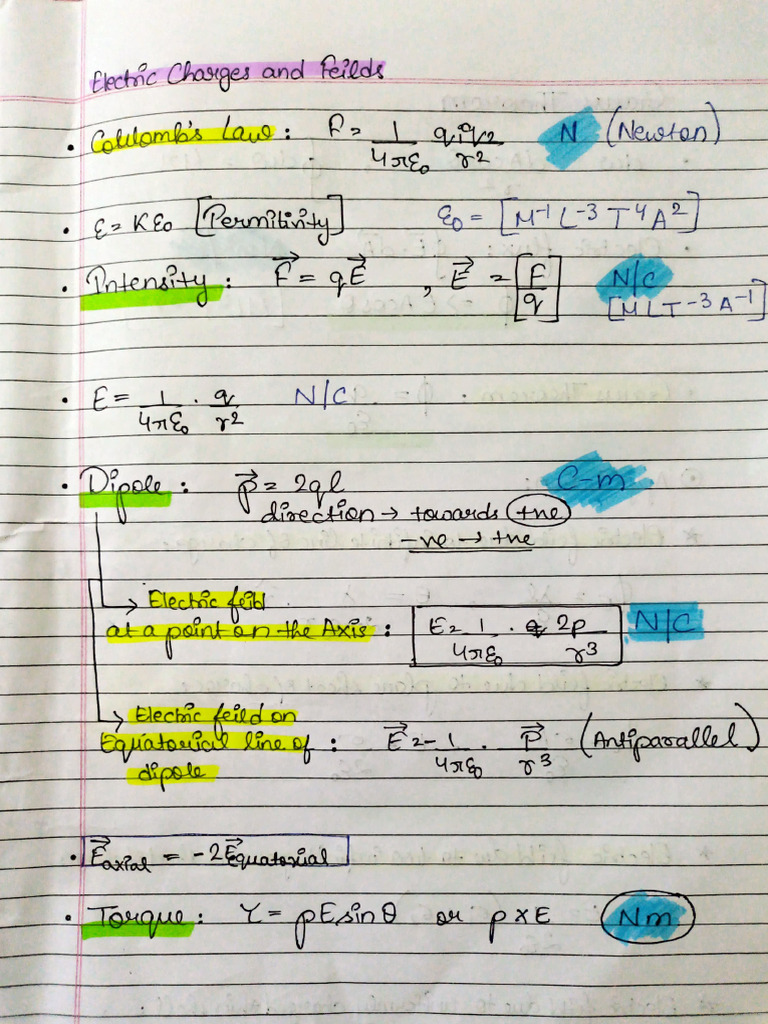 Electric Charges and Feilds
• Coulomb's Law : F = 1/4πε0 q1q2/r² N (Newton)
• ε = Kε0 [Permitivity] ε0 = [M⁻¹ L⁻³ T⁴ A²]
• Intensity : F⃗ = qE⃗ , E⃗ = [F/q] N/C
[MLT⁻³A⁻¹]
• E = 1/4πε0 · q/r² N/C
• Dipole : p⃗ = 2ql C-m
direction → towards +ve
-ve → +ve
→ Electric feild
at a point on the Axis : E = 1/4πε0 · 2p/r³ N/C
→ Electric feild on
Equatorial line of : E⃗ = -1/4πε0 · P⃗/r³ (Antiparallel)
dipole
• E⃗axial = -2E⃗equatorial
• Torque : τ = pE sin θ or p × E Nm